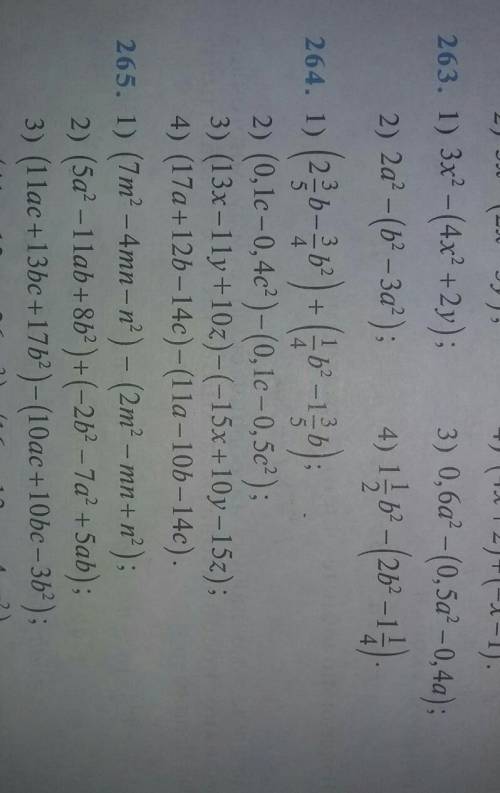 263. 1) 3x² − (4x² + 2y); 3) 0,6a² − (0,5a² − 0,4a);
2) 2a² − (b² − 3a²); 4) 1 1/2 b² − (2b² − 1 1/4).
264. 1) (2 3/5 b − 3/4 b²) + (1/4 b² − 1 3/5 b);
2) (0,1c − 0,4c²) − (0,1c − 0,5c²);
3) (13x − 11y + 10z) − (−15x + 10y − 15z);
4) (17a + 12b − 14c) − (11a − 10b − 14c).
265. 1) (7m² − 4mn − n²) − (2m² − mn + n²);
2) (5a² − 11ab + 8b²) + (−2b² − 7a² + 5ab);
3) (11ac + 13bc + 17b²) − (10ac + 10bc − 3b²);